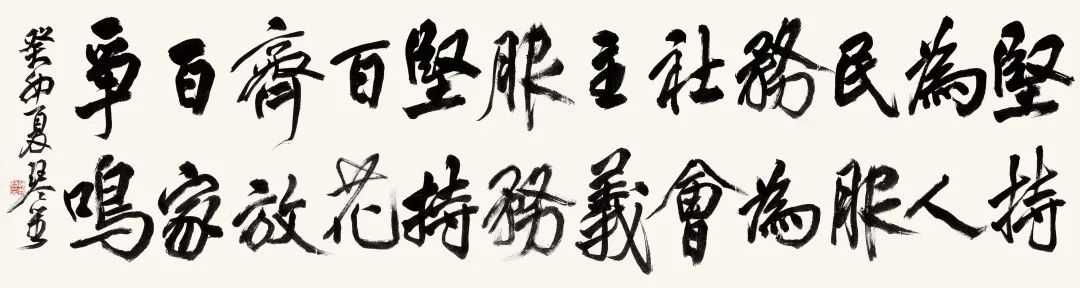 堅持
為人
民服
務為
社會
主義
服務
堅持
百花
齊放
百家
爭鳴
癸卯夏